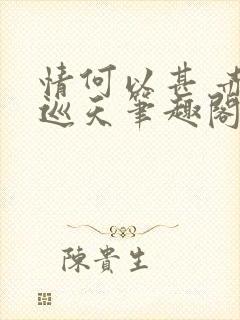 情何以甚 赤
巡天筆趣閣
陳貴生